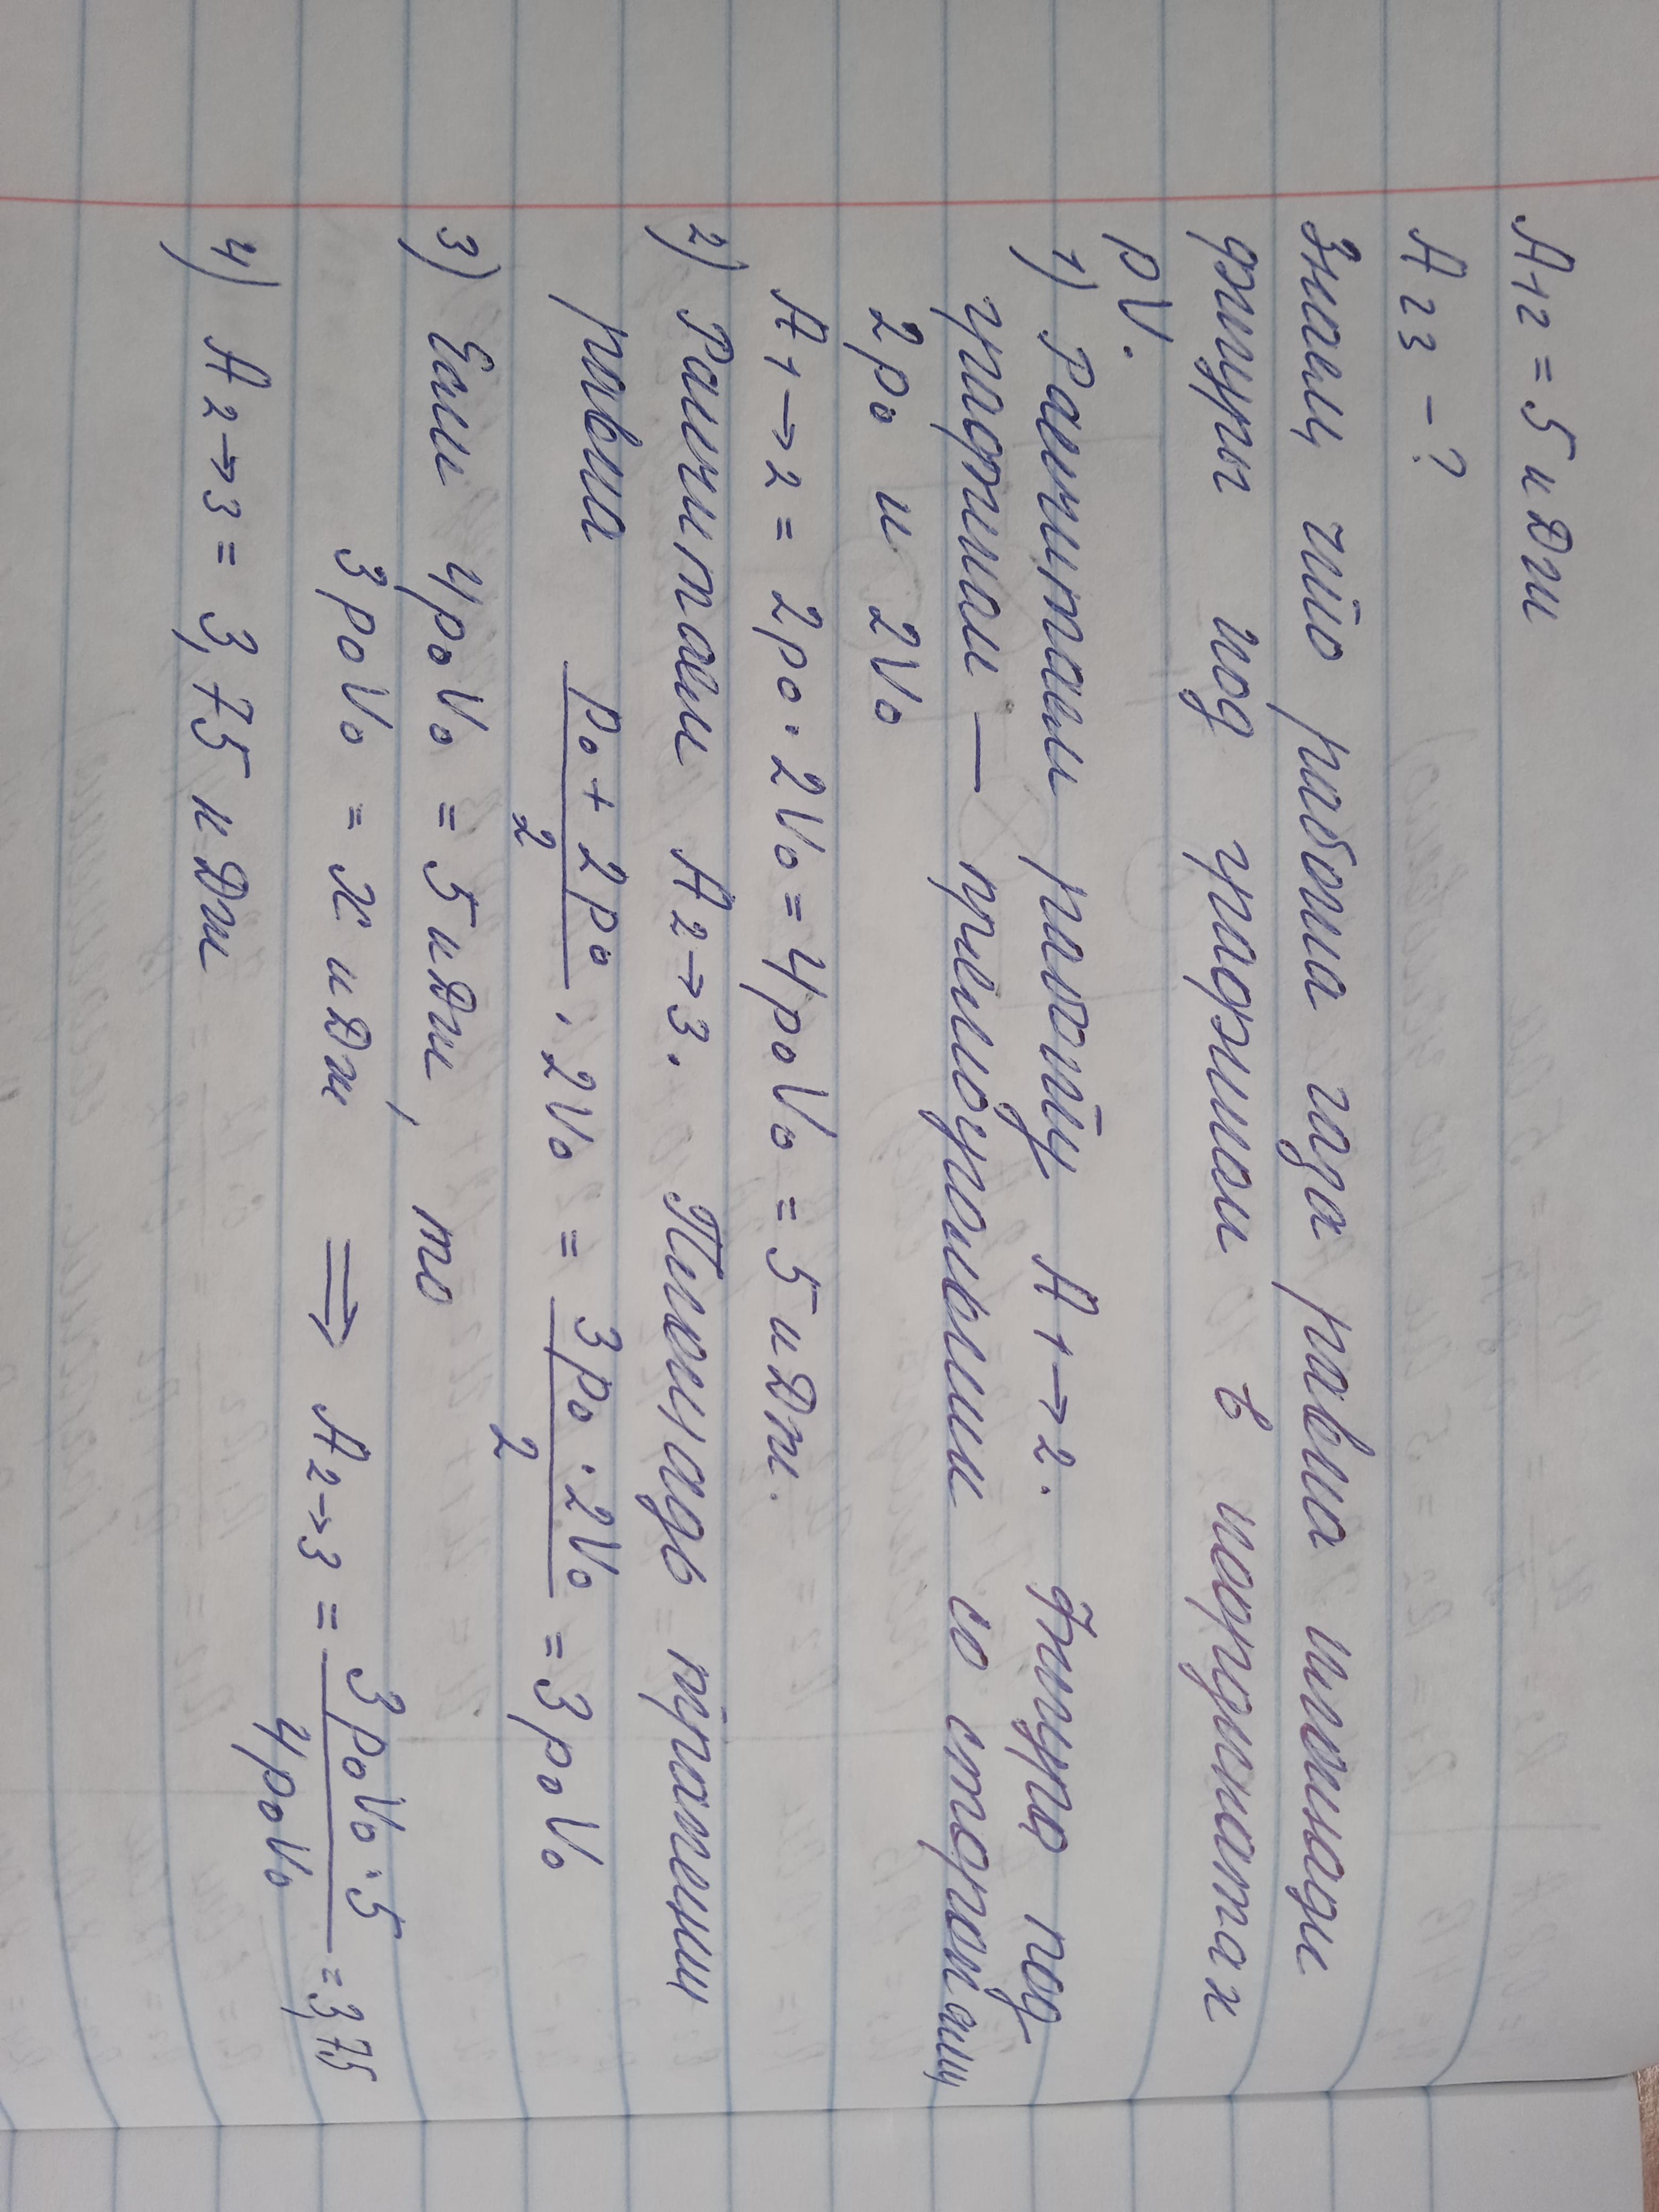 A₁₂ = 5 кДж
A₂₃ - ?
Знаем, что работа газа равна площади
фигуры под графиком в координатах
pV.
1) Рассчитаем работу A₁→₂. Фигура под
графиком — прямоугольник со сторонами
2p₀ и 2V₀
A₁→₂ = 2p₀ · 2V₀ = 4p₀V₀ = 5 кДж.
2) Рассчитаем A₂→₃. Площадь трапеции
равна \frac{p₀ + 2p₀}{2} · 2V₀ = \frac{3p₀ · 2V₀}{2} = 3p₀V₀
3) Если 4p₀V₀ = 5 кДж, то
3p₀V₀ = x кДж ⟹ A₂→₃ = \frac{3p₀V₀ · 5}{4p₀V₀} = 3,75
4) A₂→₃ = 3,75 кДж